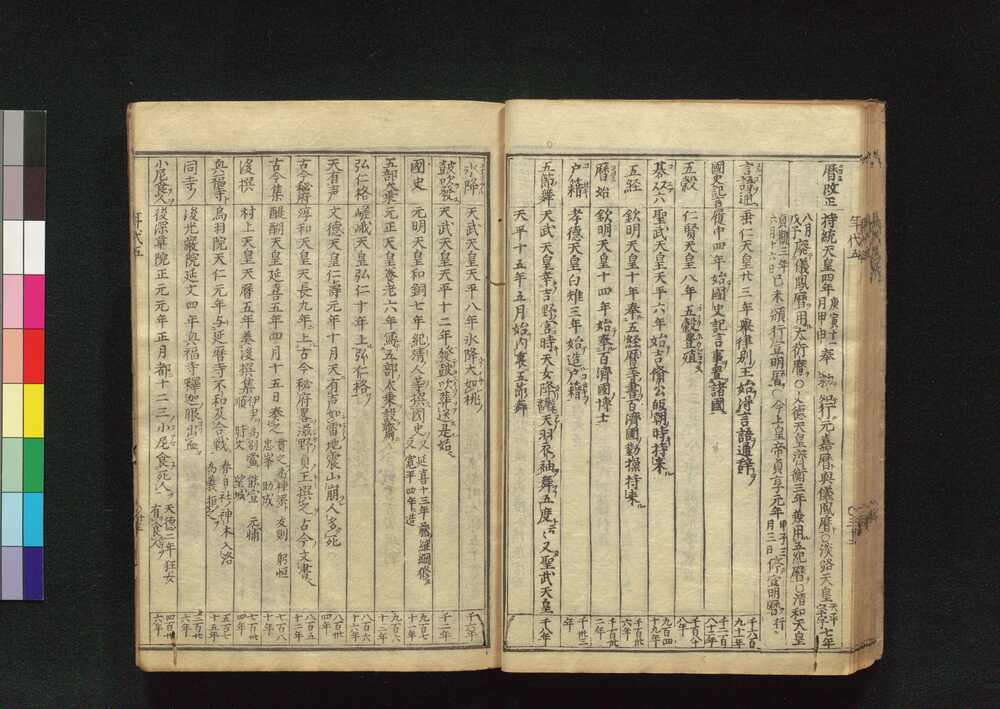 暦改正
持統天皇四年 庚寅十一月甲申 奉勅始行元嘉暦與儀鳳暦〇淡路天皇 天平宝字 七年
八月戊子 廢儀鳳暦用大衍暦〇文徳天皇斉衡三年兼用五紀暦〇清和天皇
貞観三年 六月十六日 己未頒行宣明暦〇今上皇帝貞享元年 甲子三月三日 停宣明暦行
言語通 垂仁天皇廿三年譽津別王始得言語通辞 千六百九十二年
國史記言 履中四年始國史記言事置諸國 千二百八十二年
五穀 仁賢天皇八年五穀豊穣 千百八十八年
碁双六 聖武天皇天平六年始吉備公皈朝時持来 九百四十九年
五経 欽明天皇十年奉五経暦筭書百濟國勸操持来 千百卅六年
暦始 欽明天皇十四年始奉百濟國博士 千百卅二年
戸籍 孝徳天皇白雉三年始造戸籍 千卅二年
五節舞 天武天皇幸吉野宮時天女降飜天羽衣袖舞五度又聖武天皇 千八年
天平十五年五月始内裏五節舞
氷降 天武天皇天平八年氷降大如桃 千六年
鼓吹發 天武天皇天平十二年發鼓吹葬送是始 千二年
國史 元明天皇和銅七年紀清人等撰國史 又 延喜十三年 寛平四年造 九百七十二年
五部大乗 元正天皇養老六年寫五部大乗設齋
弘仁格 嵯峨天皇弘仁十年上弘仁格 八百六十六年
天有声 文徳天皇仁壽元年十月天有声如雷地震山崩人多死 八百卅四年
古今秘府 淳和天皇天長九年上古今秘府畧滋野貞主撰之古今文書 八百五十二年
古今集 醍醐天皇延喜五年四月十五日奏之 貫之 忠岑 友則 躬恒 七百八十年
後撰 村上天皇天暦五年奏後撰集 順 時文 能宣 元輔 望城 七百卅四年
興福寺 鳥羽院天仁元年与延暦寺不和及合戦 春日社神木入洛 五百七十五年
同寺 後光嚴院延文四年興福寺釋迦眼出血 三百廿六年
小尼食人 後深草院正元元年正月都十二三小尼食死人 天徳二年狂女有食人 四百廿六年
年代五
年代五